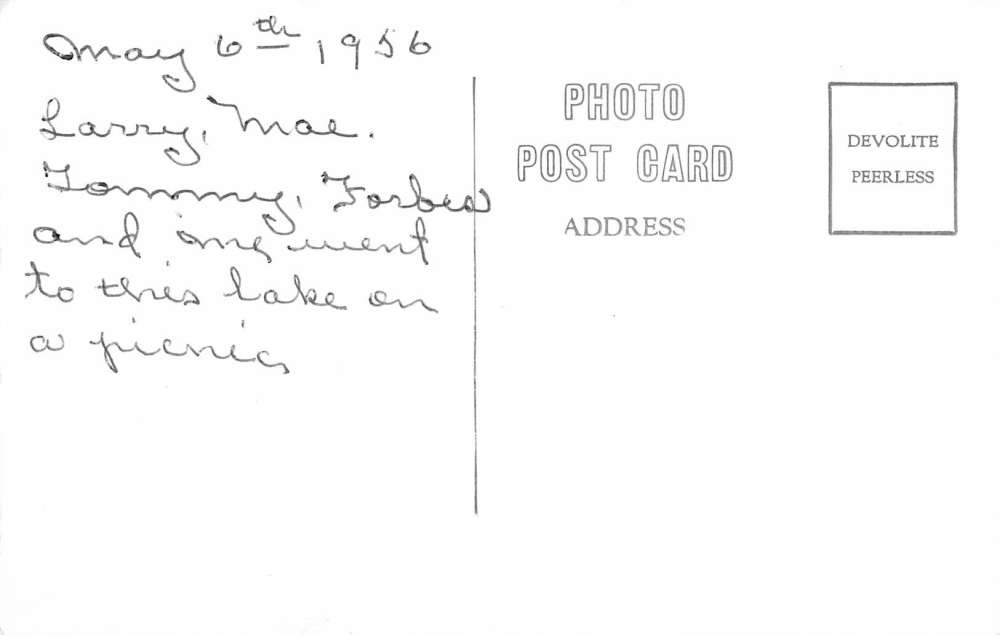 May 6th 1956
Larry, Mae.
Tommy, Forbes
and me went
to this lake on
a picnic
PHOTO
POST CARD
ADDRESS
DEVOLITE
PEERLESS